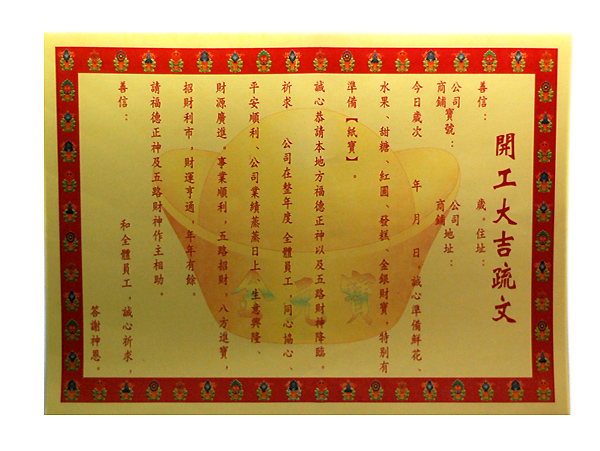 開工大吉疏文
善信：　　　歲。住址：
公司寶號：　　　公司地址：
商鋪　　　　　　商鋪
今日歲次　　年　月　日。誠心準備鮮花、
水果、甜糖、紅圓、發糕、金銀財寶，特別有
準備【紙寶】。
誠心恭請本地方福德正神以及五路財神降臨。
祈求　　公司在整年度全體員工，同心協心、
平安順利、公司業績蒸蒸日上、生意興隆、
財源廣進，事業順利，五路招財，八方進寶，
招財利市，財運亨通，年年有餘。
請福德正神及五路財神作主相助。
善信：　　　和全體員工，誠心祈求，
答謝神恩。
金元寶